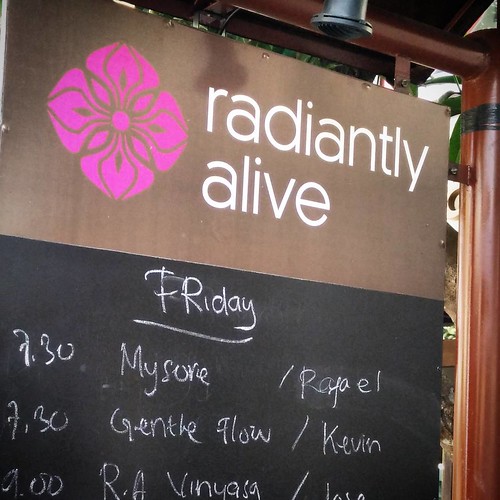 radiantly
alive
FRiday
7.30 Mysore / Rafael
7.30 Gentle Flow / Kevin
9.00 R.A Vinyasa /